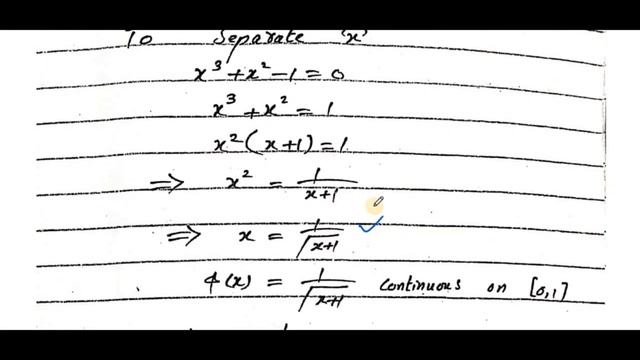 To Separate 'x'
x³ + x² - 1 = 0
x³ + x² = 1
x² ( x + 1 ) = 1
⇒ x² = 1/(x+1)
⇒ x = 1/√(x+1) ✓
φ(x) = 1/√(x+1) continuous on [0,1]